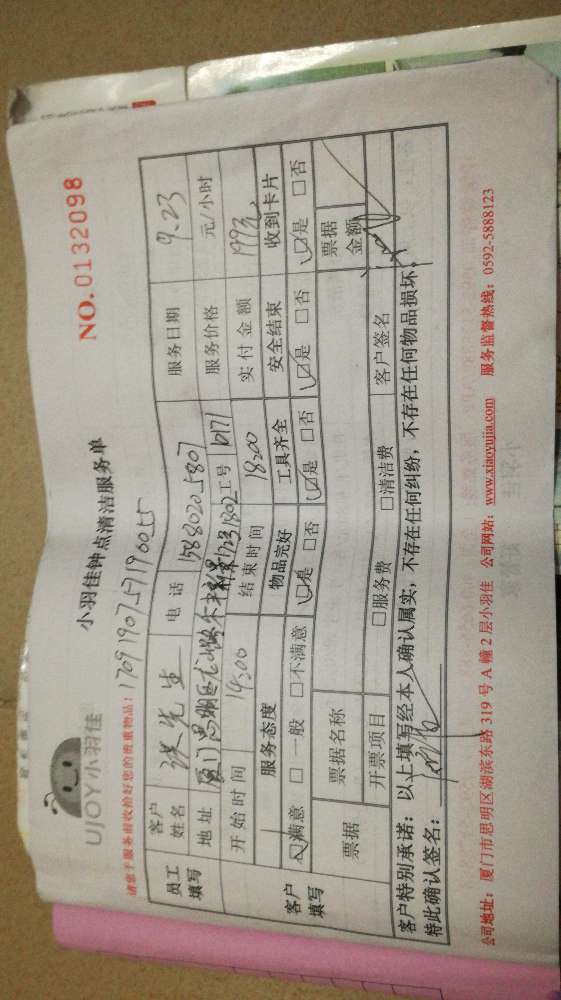 UJOY小羽佳
小羽佳钟点清洁服务单
NO.0132098
请您于服务前收拾好您的贵重物品: 1709190757190055
员工填写
客户姓名 洪先生 电话 15880205807 服务日期 9.23
地址 工号 D171 服务价格 元/小时
开始时间 14:00 结束时间 18:00 实付金额 199元
客户填写
服务态度 物品完好 工具齐全 安全结束 收到卡片
满意 □一般 □不满意 是 □否 是 □否 是 □否 是 □否
票据 票据名称 票据金额
开票项目 □服务费 □清洁费 客户签名
客户特别承诺: 以上填写经本人确认属实, 不存在任何纠纷, 不存在任何物品损坏,
特此确认签名:
公司地址: 厦门市思明区湖滨东路 319 号 A 幢 2 层小羽佳 公司网站: www.xiaoyujia.com 服务监督热线: 0592-5888123